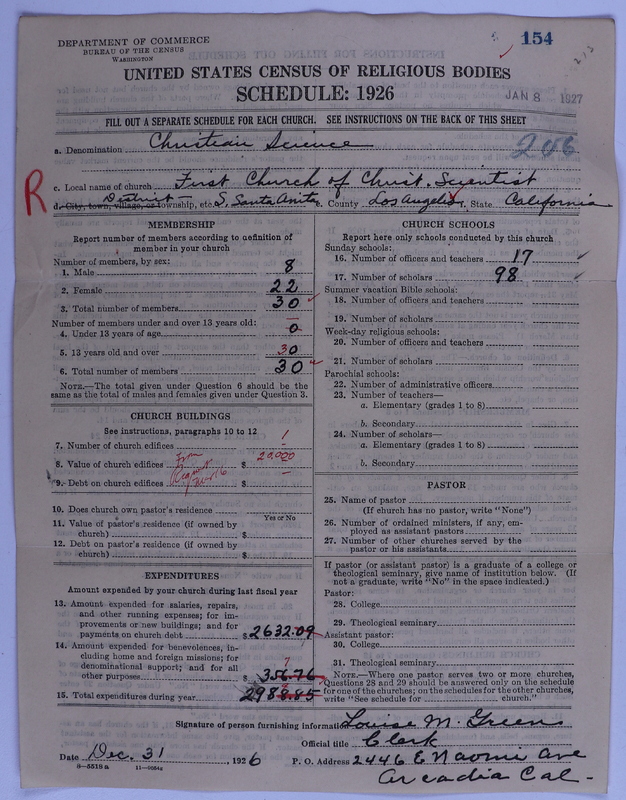 DEPARTMENT OF COMMERCE
BUREAU OF THE CENSUS
WASHINGTON
154
UNITED STATES CENSUS OF RELIGIOUS BODIES
SCHEDULE: 1926
JAN 8 1927
FILL OUT A SEPARATE SCHEDULE FOR EACH CHURCH. SEE INSTRUCTIONS ON THE BACK OF THIS SHEET
a. Denomination Christian Science
206
c. Local name of church First Church of Christ, Scientist
R
d. City, town, village, or township, etc. District - S. Santa Anita e. County Los Angeles f. State California
MEMBERSHIP
Report number of members according to definition of
member in your church
Number of members, by sex:
1. Male 8
2. Female 22
3. Total number of members 30
Number of members under and over 13 years old:
4. Under 13 years of age 0
5. 13 years old and over 30
6. Total number of members 30
NOTE.—The total given under Question 6 should be the
same as the total of males and females given under Question 3.
CHURCH BUILDINGS
See instructions, paragraphs 10 to 12
7. Number of church edifices 1
8. Value of church edifices $ 20,000
9. Debt on church edifices $ —
10. Does church own pastor's residence
Yes or No
11. Value of pastor's residence (if owned by
church) $
12. Debt on pastor's residence (if owned by
church) $
EXPENDITURES
Amount expended by your church during last fiscal year
13. Amount expended for salaries, repairs,
and other running expenses; for im-
provements or new buildings; and for
payments on church debt $ 2632.09
14. Amount expended for benevolences, in-
cluding home and foreign missions; for
denominational support; and for all
other purposes $ 356.76
15. Total expenditures during year 2988.85
CHURCH SCHOOLS
Report here only schools conducted by this church
Sunday schools:
16. Number of officers and teachers 17
17. Number of scholars 98
Summer vacation Bible schools:
18. Number of officers and teachers
19. Number of scholars
Week-day religious schools:
20. Number of officers and teachers
21. Number of scholars
Parochial schools:
22. Number of administrative officers
23. Number of teachers—
a. Elementary (grades 1 to 8)
b. Secondary
24. Number of scholars—
a. Elementary (grades 1 to 8)
b. Secondary
PASTOR
25. Name of pastor
(If church has no pastor, write "None")
26. Number of ordained ministers, if any, em-
ployed as assistant pastors
27. Number of other churches served by the
pastor or his assistants
If pastor (or assistant pastor) is a graduate of a college or
theological seminary, give name of institution below. (If
not a graduate, write "No" in the space indicated.)
Pastor:
28. College
29. Theological seminary
Assistant pastor:
30. College
31. Theological seminary
NOTE.—Where one pastor serves two or more churches,
Questions 28 and 29 should be answered only on the schedule
for one of the churches; on the schedules for the other churches,
write "See schedule for church."
Signature of person furnishing information Louise M. Greene
Official title Clerk
Date Dec. 31, 1926 P. O. Address 2446 E Naomi Ave
8—5518a 11—9664a Arcadia Cal-